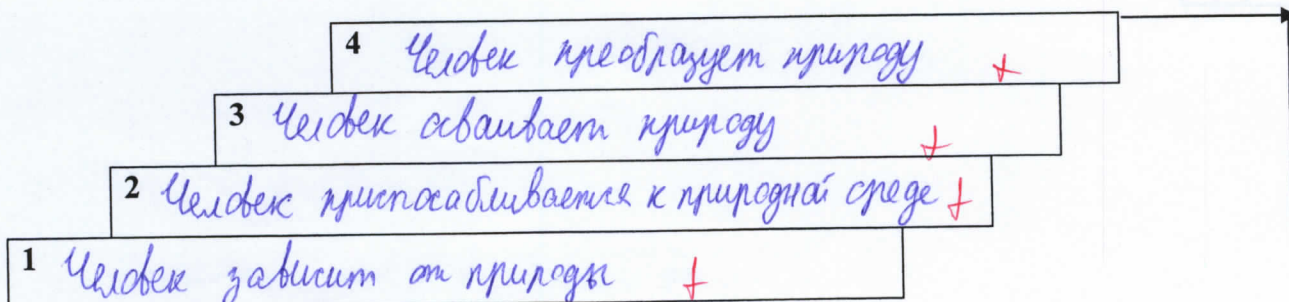 4 Человек преобразует природу +
3 Человек осваивает природу +
2 Человек приспосабливается к природной среде +
1 Человек зависит от природы +